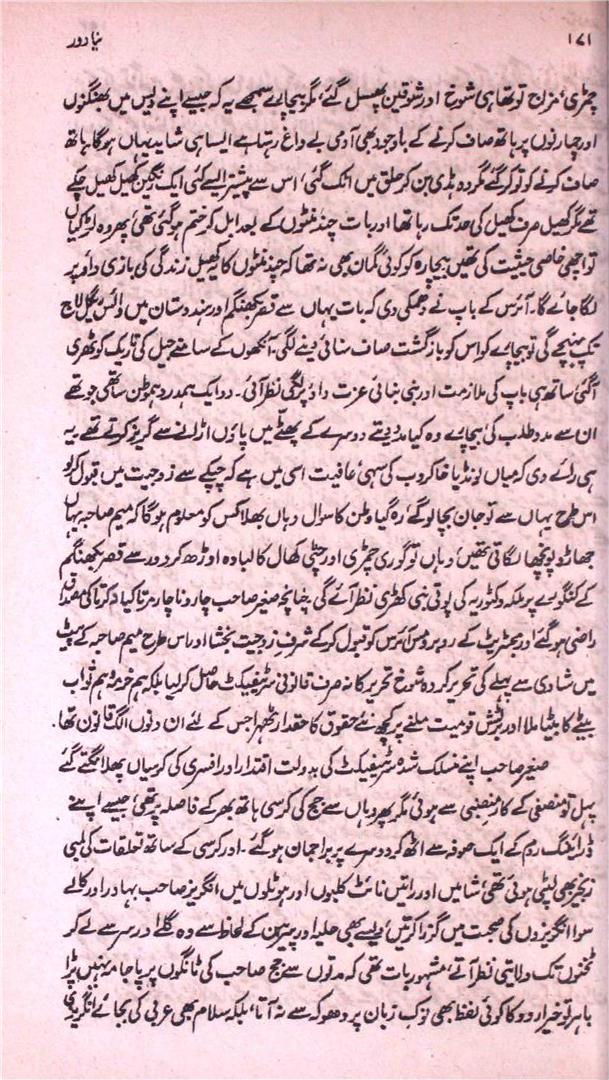 ۱۷۱ نیا دور
چمڑی، مزاج تو تھا ہی شوخ اور شوقین پھسل گئے، مگر بیچارے سمجھے یہ کہ جیسے اپنے دیس میں بھنگنوں
اور چمارنوں پر ہاتھ صاف کرنے کے باوجود بھی آدمی بے داغ رہتا ہے ایسا ہی شاید یہاں ہوگا۔ ہاتھ
صاف کرنے کو تو کر گئے مگر وہ ہڈی بن کر حلق میں اٹک گئی، اس سے پیشتر ایسے کئی ایک رنگین کھیل کھیل چکے
تھے مگر کھیل صرف کھیل کی حد تک رہا تھا اور بات چند منٹوں کے بعد ابل کر ختم ہو گئی تھی، پھر وہ لڑکیاں
تو اچھی خاصی حیثیت کی تھیں بیچارہ کو کوئی گمان بھی نہ تھا کہ چند منٹوں کا یہ کھیل زندگی کی بازی داؤ پر
لگا جائے گا۔ آئرس کے باپ نے دھمکی دی کہ بات یہاں سے قصر بکھنگم اور ہندوستان میں وائس ریگل لاج
تک پہنچے گی تو بیچارے کو اس کو بازگشت صاف سنائی دینے لگی۔ آنکھوں کے سامنے جیل کی تاریک کوٹھری
آگئی ساتھ ہی باپ کی ملازمت اور بنی بنائی عزت داؤ پر لگی نظر آئی۔ دو ایک ہمدرد ہم وطن ساتھی جو تھے
ان سے مدد طلب کی بیچارے وہ کیا مدد دیتے دوسرے کے پھٹے میں پاؤں اڑانے سے گریز کرتے تھے یہ
ہی رائے دی کہ میاں لونڈیا خاکروب کی سہی، عافیت اسی میں ہے کہ چپکے سے زوجیت میں قبول کر لو
اس طرح یہاں سے تو جان بچا لوگے، رہ گیا وطن کا سوال وہاں بھلا کس کو معلوم ہوگا کہ میم صاحبہ یہاں
جھاڑو پونچھا لگاتی تھیں، وہاں تو گوری چمڑی اور چٹی کھال کا لبادہ اوڑھ کر دور سے قصر بکھنگم
کے کنگورے پر ملکہ وکٹوریہ کی پوتی بنی کھڑی نظر آئے گی چنانچہ صغیر صاحب چار و ناچار مرتا کیا نہ کرتا کی مصداق
راضی ہو گئے اور مجسٹریٹ کے روبرو مس آئرس کو قبول کر کے شرف زوجیت بخشا اور اس طرح میم صاحبہ کے پیٹ
میں شادی سے پہلے کی تحریر کردہ شوخ تحریر کا نہ صرف قانونی سرٹیفکیٹ حاصل کر لیا بلکہ ہم خرما و ہم ثواب
بیٹے کا بیٹا ملا اور برٹش قومیت ملنے پر کچھ نئے حقوق کا حقدار ٹھہرا جس کے لئے ان دنوں الگ قانون تھا۔
صغیر صاحب اپنے منسلک شدہ سرٹیفیکٹ کی بدولت اقتدار اور افسری کی کرسیاں پھلانگتے گئے
پہل تو منصفی کے کار منصبی سے ہوئی مگر پھر وہاں سے جج کی کرسی ہاتھ بھر کے فاصلہ پر تھی، جیسے اپنے
ڈرائنگ روم کے ایک صوفہ سے اٹھ کر دوسرے پر براجمان ہو گئے۔ اور کرسی کے ساتھ تعلقات کی لمبی
زنجیر بھی لپٹی ہوئی تھی، شامیں اور راتیں نائٹ کلبوں اور ہوٹلوں میں انگریز صاحب بہادر اور کالے
سوا انگریزوں کی صحبت میں گزرا کرتیں، ویسے بھی حلیہ اور پیرہن کے لحاظ سے وہ گلے اور سر سے لے کر
ٹخنوں تک ولایتی نظر آتے، مشہور بات تھی کہ مدتوں سے جج صاحب کی ٹانگوں پر پاجامہ نہیں پڑا
باہر تو خیر اردو کا کوئی لفظ بھی نوک زبان پر دھوکہ سے نہ آتا، بلکہ سلام بھی عربی کی بجائے انگریزی